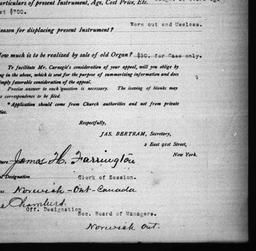 articulars of present Instrument, Age, Cost Price, Etc.
$700.
Worn out and Useless.
Reason for displacing present Instrument?
How much is to be realized by sale of old Organ? $50. for Case only.
To facilitate Mr. Carnegie's consideration of your appeal, will you oblige by
ing in the above, which is sent for the purpose of summarizing information and does
imply favorable consideration of the appeal.
Precise answer to each question is necessary. The issuing of blanks may
correspondence to be filed.
*Application should come from Church authorities and not from private
ties.
Respectfully,
JAS. BERTRAM, Secretary,
2 East 91st Street,
New York.
James H. Farrington
Designation Clerk of Session.
Norwich - Ont - Canada
Chambers
Off. Designation
Sec. Board of Managers.
Norwich Ont.